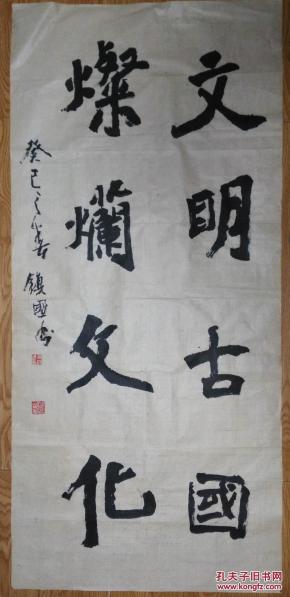 文明古國
燦爛文化
癸巳之春 鎮國书
孔夫子旧书网